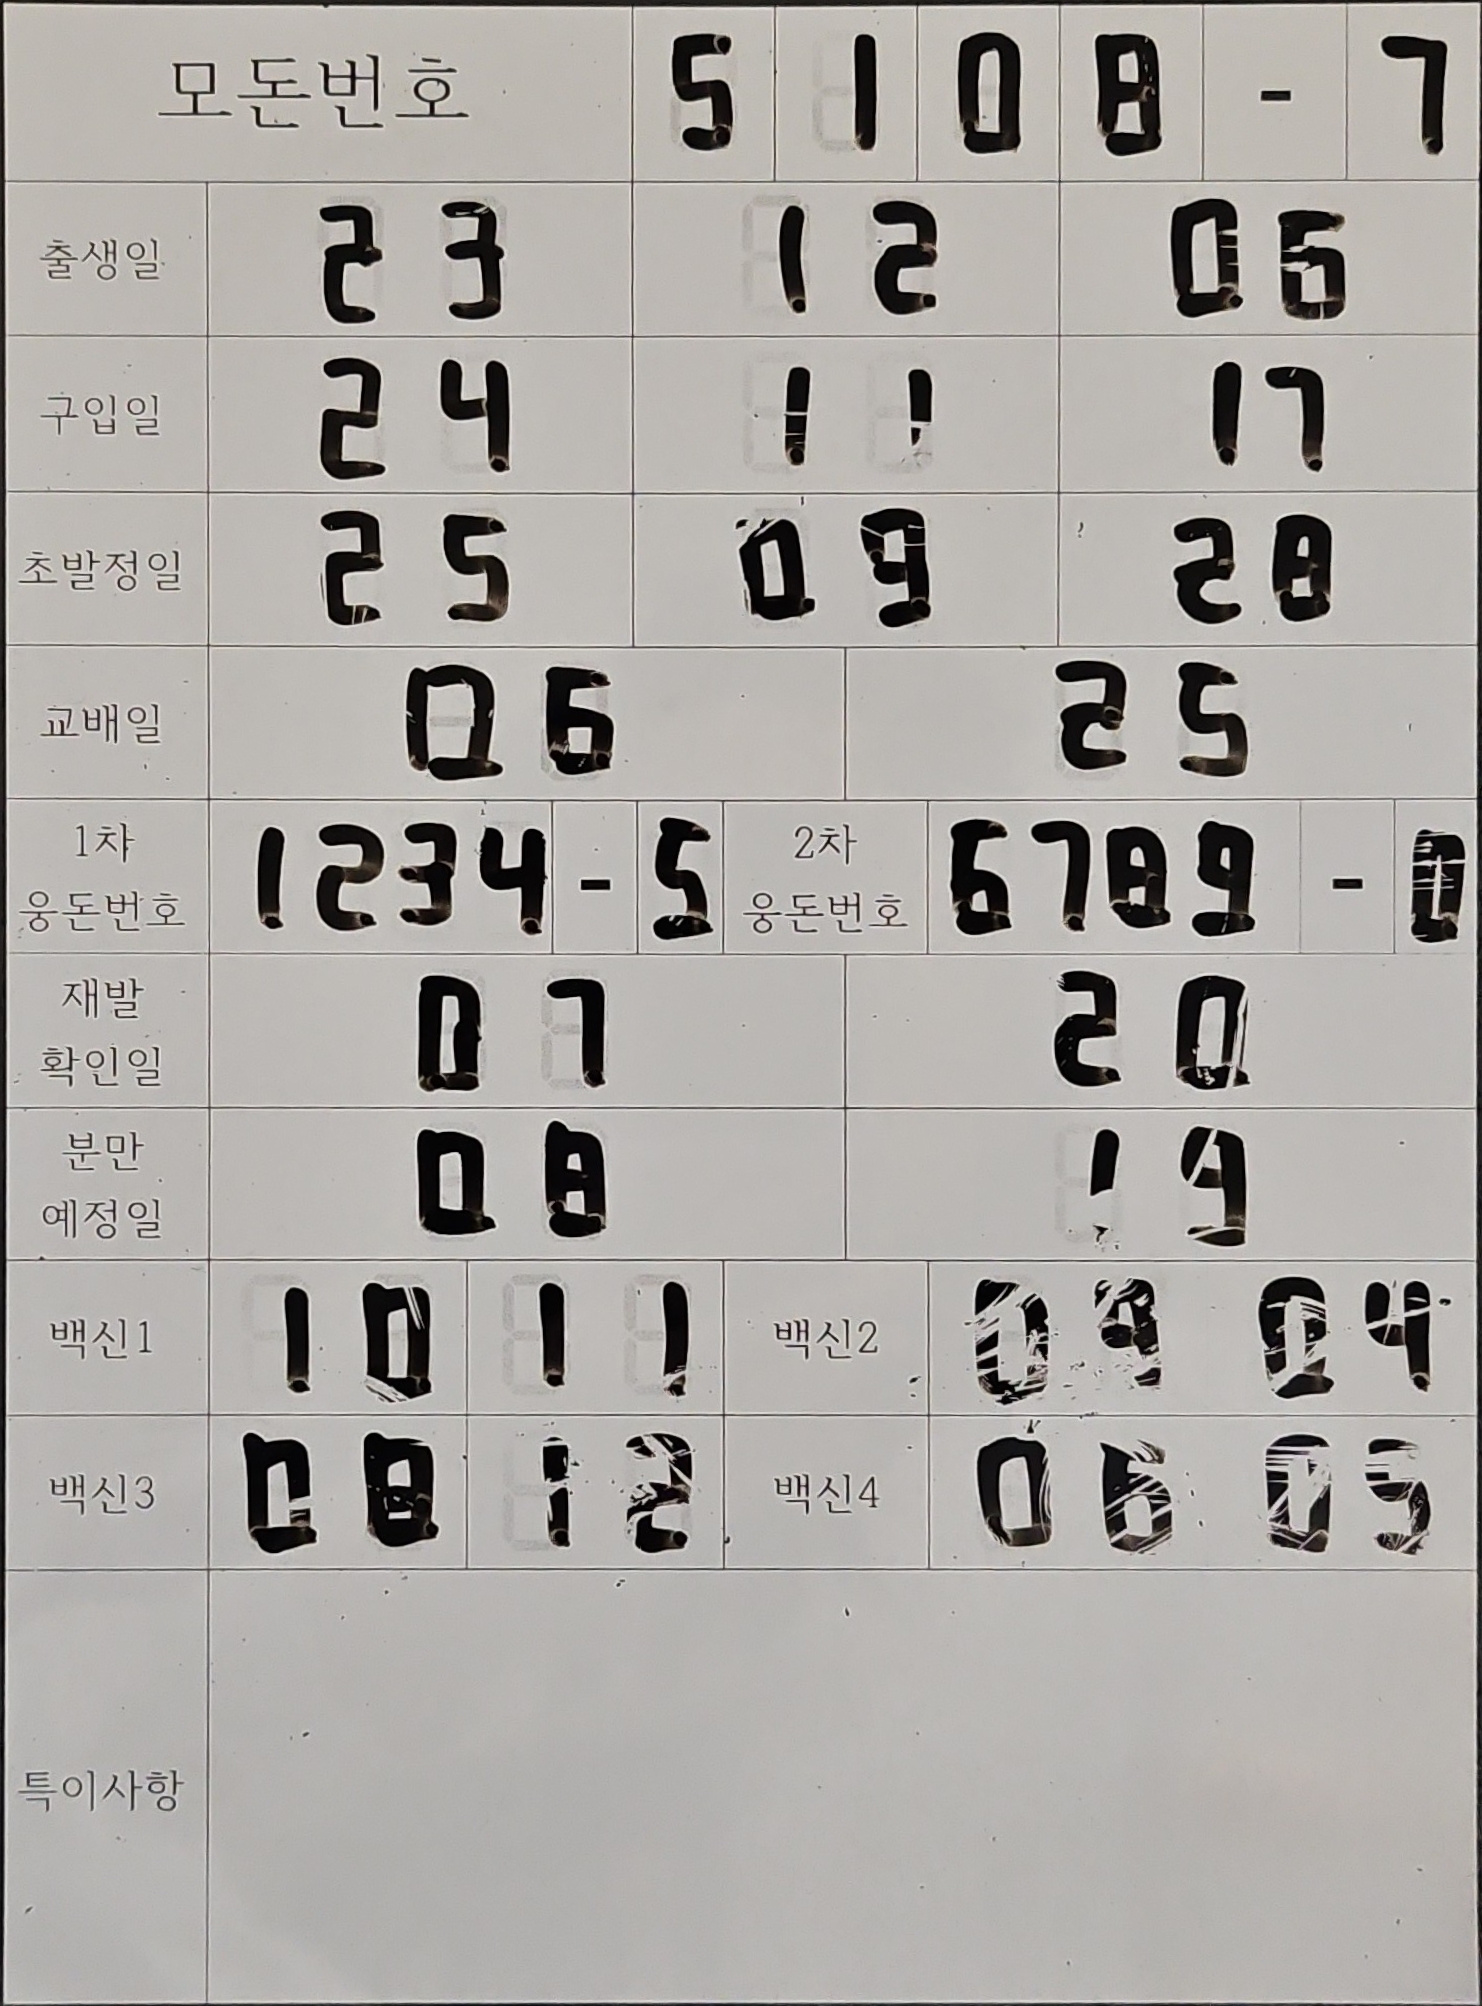 모돈번호 5 1 0 8 - 7
출생일 23 12 06
구입일 24 11 17
초발정일 25 09 28
교배일 06 25
1차 웅돈번호 1234 - 5 2차 웅돈번호 6789 - 0
재발 확인일 07 20
분만 예정일 08 19
백신1 10 11 백신2 09 04
백신3 08 12 백신4 06 05
특이사항